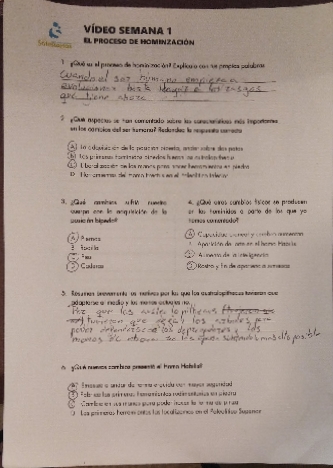 VÍDEO SEMANA 1
EL PROCESO DE HOMINIZACIÓN
1. ¿Qué es el proceso de hominización? Explícalo con tus propias palabras
Cuando el ser humano empieza a
evolucionar hasta llegar a los rasgos
que tiene ahora
2. ¿Qué aspectos se han comentado sobre las características más importantes
en los cambios del ser humano? Redondea la respuesta correcta
A La adquisición de la posición bípeda, andar sobre dos patas
B Los primeros homínidos bípedos fueron los australopithecus
C Liberación de las manos para hacer herramientas en piedra
D Herramientas del Homo Erectus en el Paleolítico Inferior
3. ¿Qué cambios sufrió nuestro
cuerpo con la adquisición de la
posición bípeda?
A Piernas
B Rodilla
C Pies
D Caderas
4. ¿Qué otros cambios físicos se producen
en los homínidos a parte de los que ya
hemos comentado?
A Capacidad craneal y cerebro aumentan
B Aparición del arte en el Homo Habilis
C Aumento de la inteligencia
D Rostro y fin de apariencia simiesca
5. Resumen brevemente los motivos por los que los australopithecus tuvieron que
adaptarse al medio y las manos actuales
Por que los australopithecus
tuvieron que dejar los árboles
poder defenderse de los depredadores y las
manos
6. ¿Qué nuevos cambios presentó el Homo Habilis?
A Empieza a andar de forma erguida con mayor seguridad
B Fabrica las primeras herramientas rudimentarias en piedra
C Cambia en sus manos para poder hacer la forma de pinza
D Las primeras herramientas las localizamos en el Paleolítico Superior